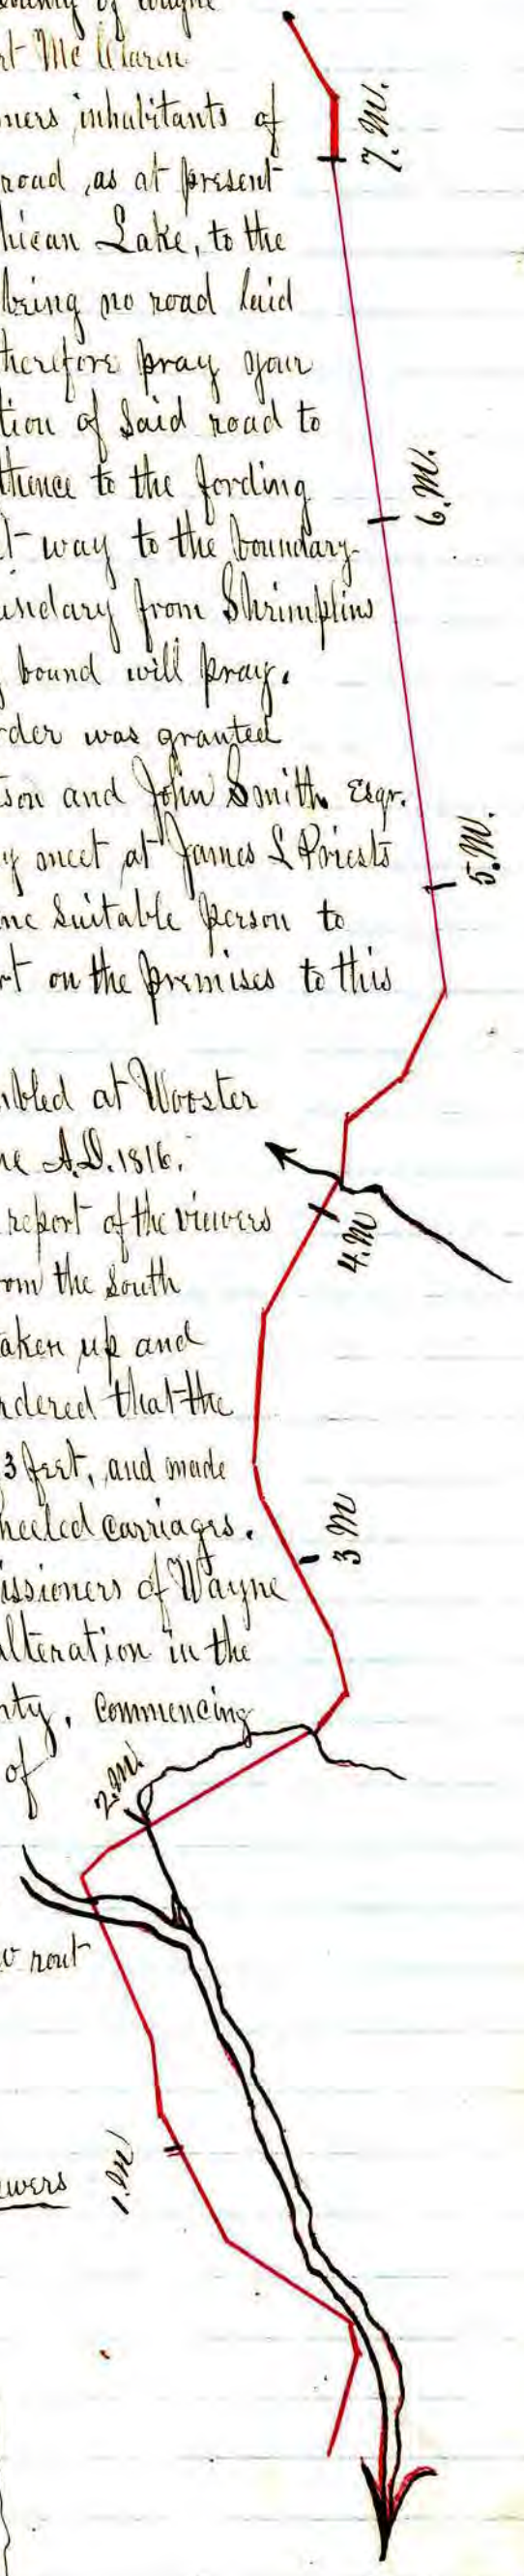 county of Wayne
rt McClaren
ners inhabitants of
road, as at present
hican Lake, to the
being no road laid
therefore pray your
tion of said road to
thence to the fording
t way to the boundary
undary from Shrimplins
bound will pray.
rder was granted
son and John Smith Esqr.
y meet at James L Priests
me Suitable person to
rt on the premises to this
mbled at Wooster
ne A.D. 1816.
report of the viewers
rom the South
aken up and
rdered that the
3 feet, and made
heeled carriages.
issioners of Wayne
alteration in the
nty, Commencing
of
w rout
ewers
7. M.
6. M.
5. M.
4. M
3 M
2. M.
1. M